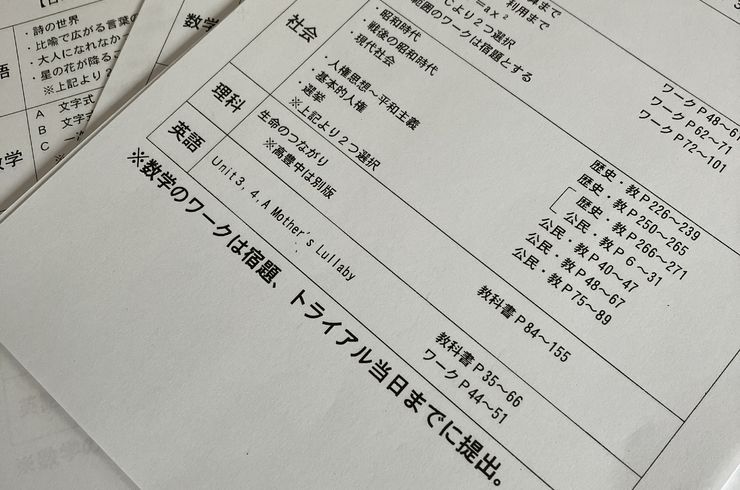 ・詩の世界
・比喩で広がる言葉の
・大人になれなか
・星の花が降るこ
※上記より２つ
語
A 文字式
B 文字
C 一
数学
数学
まで
=ax² 利用まで
Cより２つ選択
範囲のワークは宿題とする
ワークP48～6
ワークP62～71
ワークP72～101
社会
・昭和時代
・戦後の昭和時代
・現代社会
・人権思想～平和主義
・基本的人権
・選挙
※上記より２つ選択
歴史・教P226～239
歴史・教P250～265
歴史・教P266～271
公民・教P６～31
公民・教P40～47
公民・教P48～67
公民・教P75～89
理科
生命のつながり
※高豊中は別版
教科書P84～155
英語
Unit3, 4, A Mother's Lullaby
教科書P35～66
ワークP44～51
※数学のワークは宿題、トライアル当日までに提出。